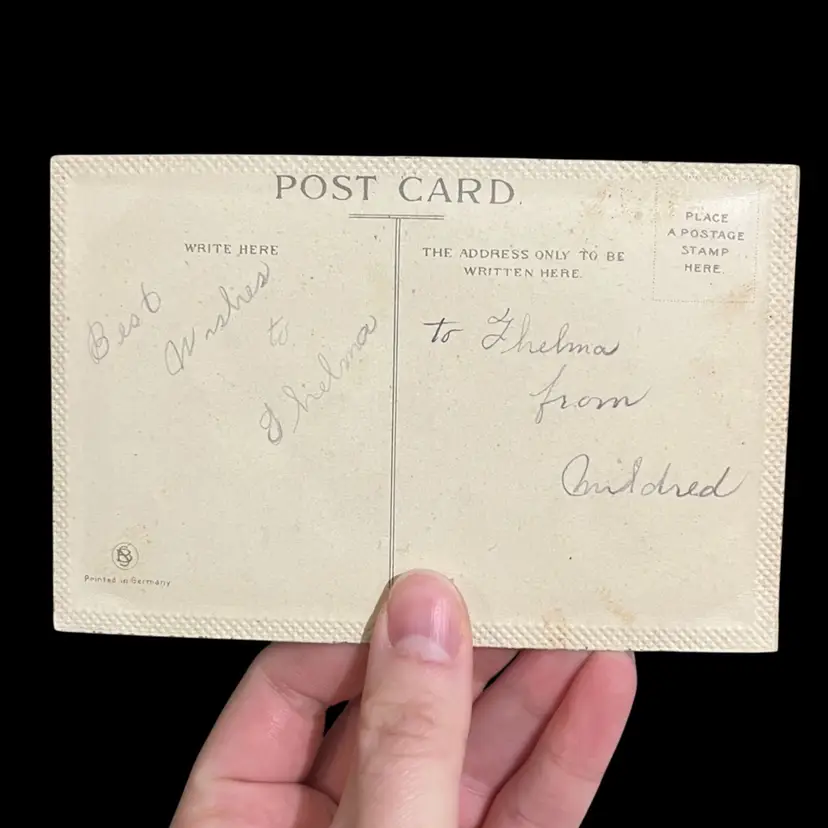 POST CARD.
WRITE HERE
Best
Wishes
to
Thielma
THE ADDRESS ONLY TO BE
WRITTEN HERE.
to Thelma
from
Mildred
PLACE
A POSTAGE
STAMP
HERE.
Printed in Germany